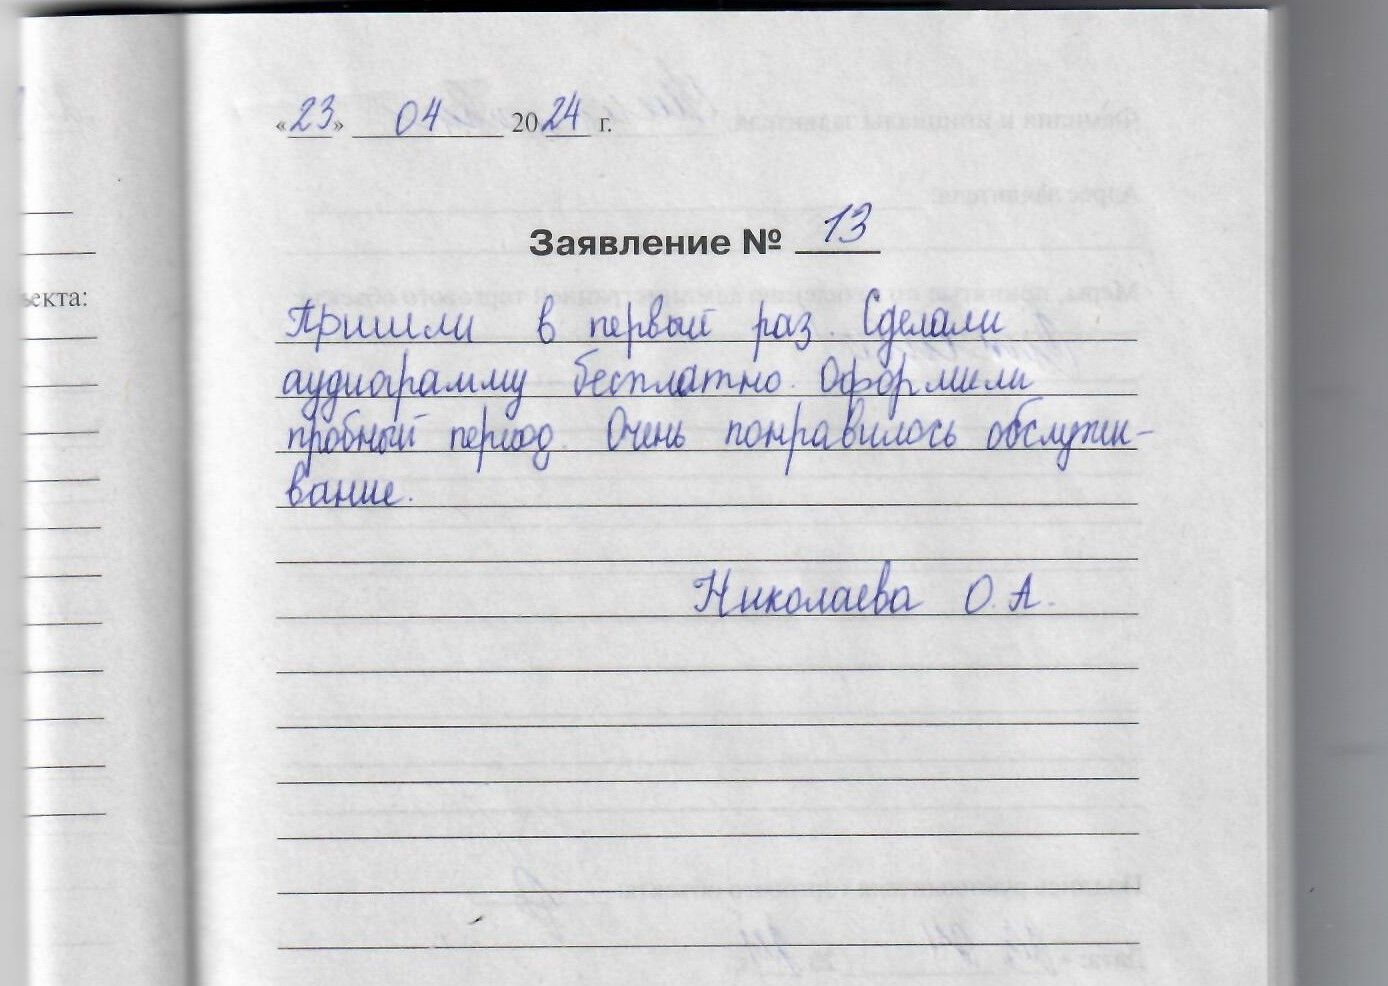 «23» 04 2024 г.
Заявление № 13
екта:
Пришли в первый раз. Сделали
аудиограмму бесплатно. Оформили
пробный период. Очень понравилось обслужи-
вание.
Николаева О. А.